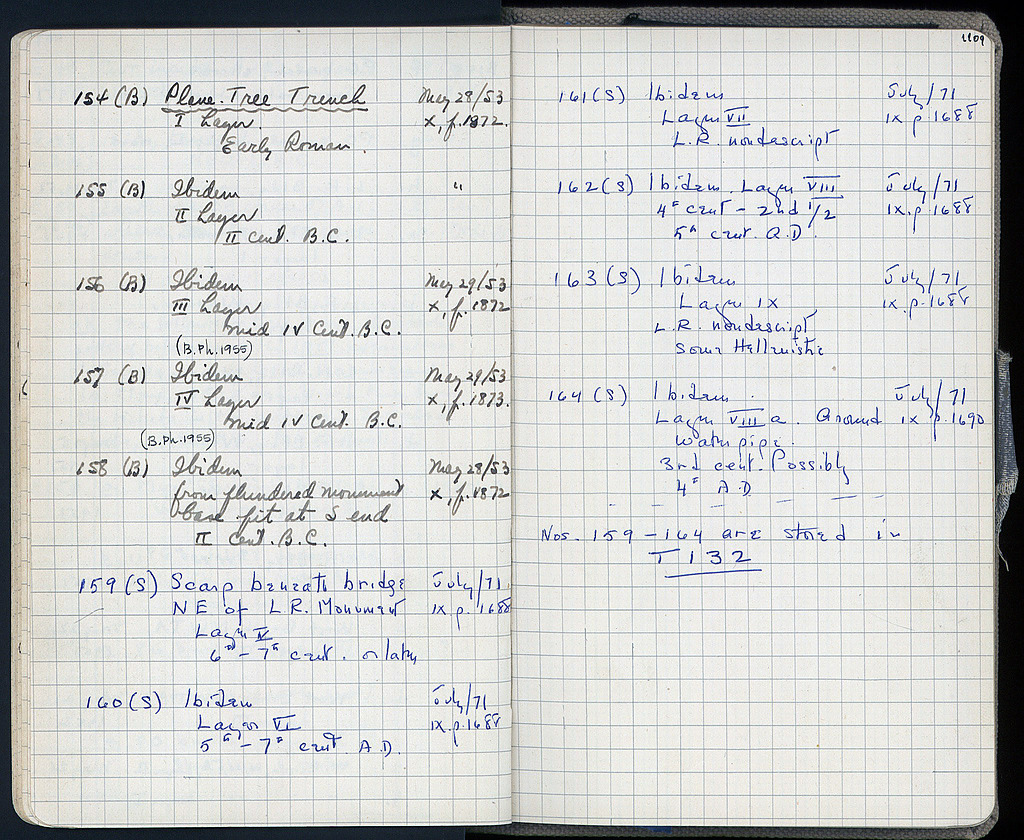 154 (B) Plane-Tree Trench May 28/53
I Layer. X, p. 1872.
Early Roman.
155 (B) Ibidem "
II Layer
II cent. B.C.
156 (B) Ibidem May 29/53
III Layer X, p. 1872
mid IV Cent. B.C.
(B.Ph. 1955)
157 (B) Ibidem May 29/53
IV Layer X, p. 1873.
mid IV Cent. B.C.
(B.Ph. 1955)
158 (B) Ibidem May 28/53
from plundered monument X, p. 1872
base pit at S end
II cent. B.C.
159 (S) Scarp beneath bridge July/71
NE of L.R. Monument IX. p. 1688
Layer V
6th - 7th cent. or later
160 (S) Ibidem July/71
Layer VI IX. p. 1688
5th - 7th cent A.D.
1109
161 (S) Ibidem July/71
Layer VII IX p. 1688
L.R. nondescript
162 (S) Ibidem. Layer VIII July/71
4th cent - 2nd 1/2 IX. p. 1688
5th cent. A.D.
163 (S) Ibidem July/71
Layer IX IX. p. 1688
L.R. nondescript
Some Hellenistic
164 (S) Ibidem. July/71
Layer VIII a. Around IX p. 1690
water pipe.
3rd cent. Possibly
4th A.D
Nos. 159 - 164 are stored in
T 132